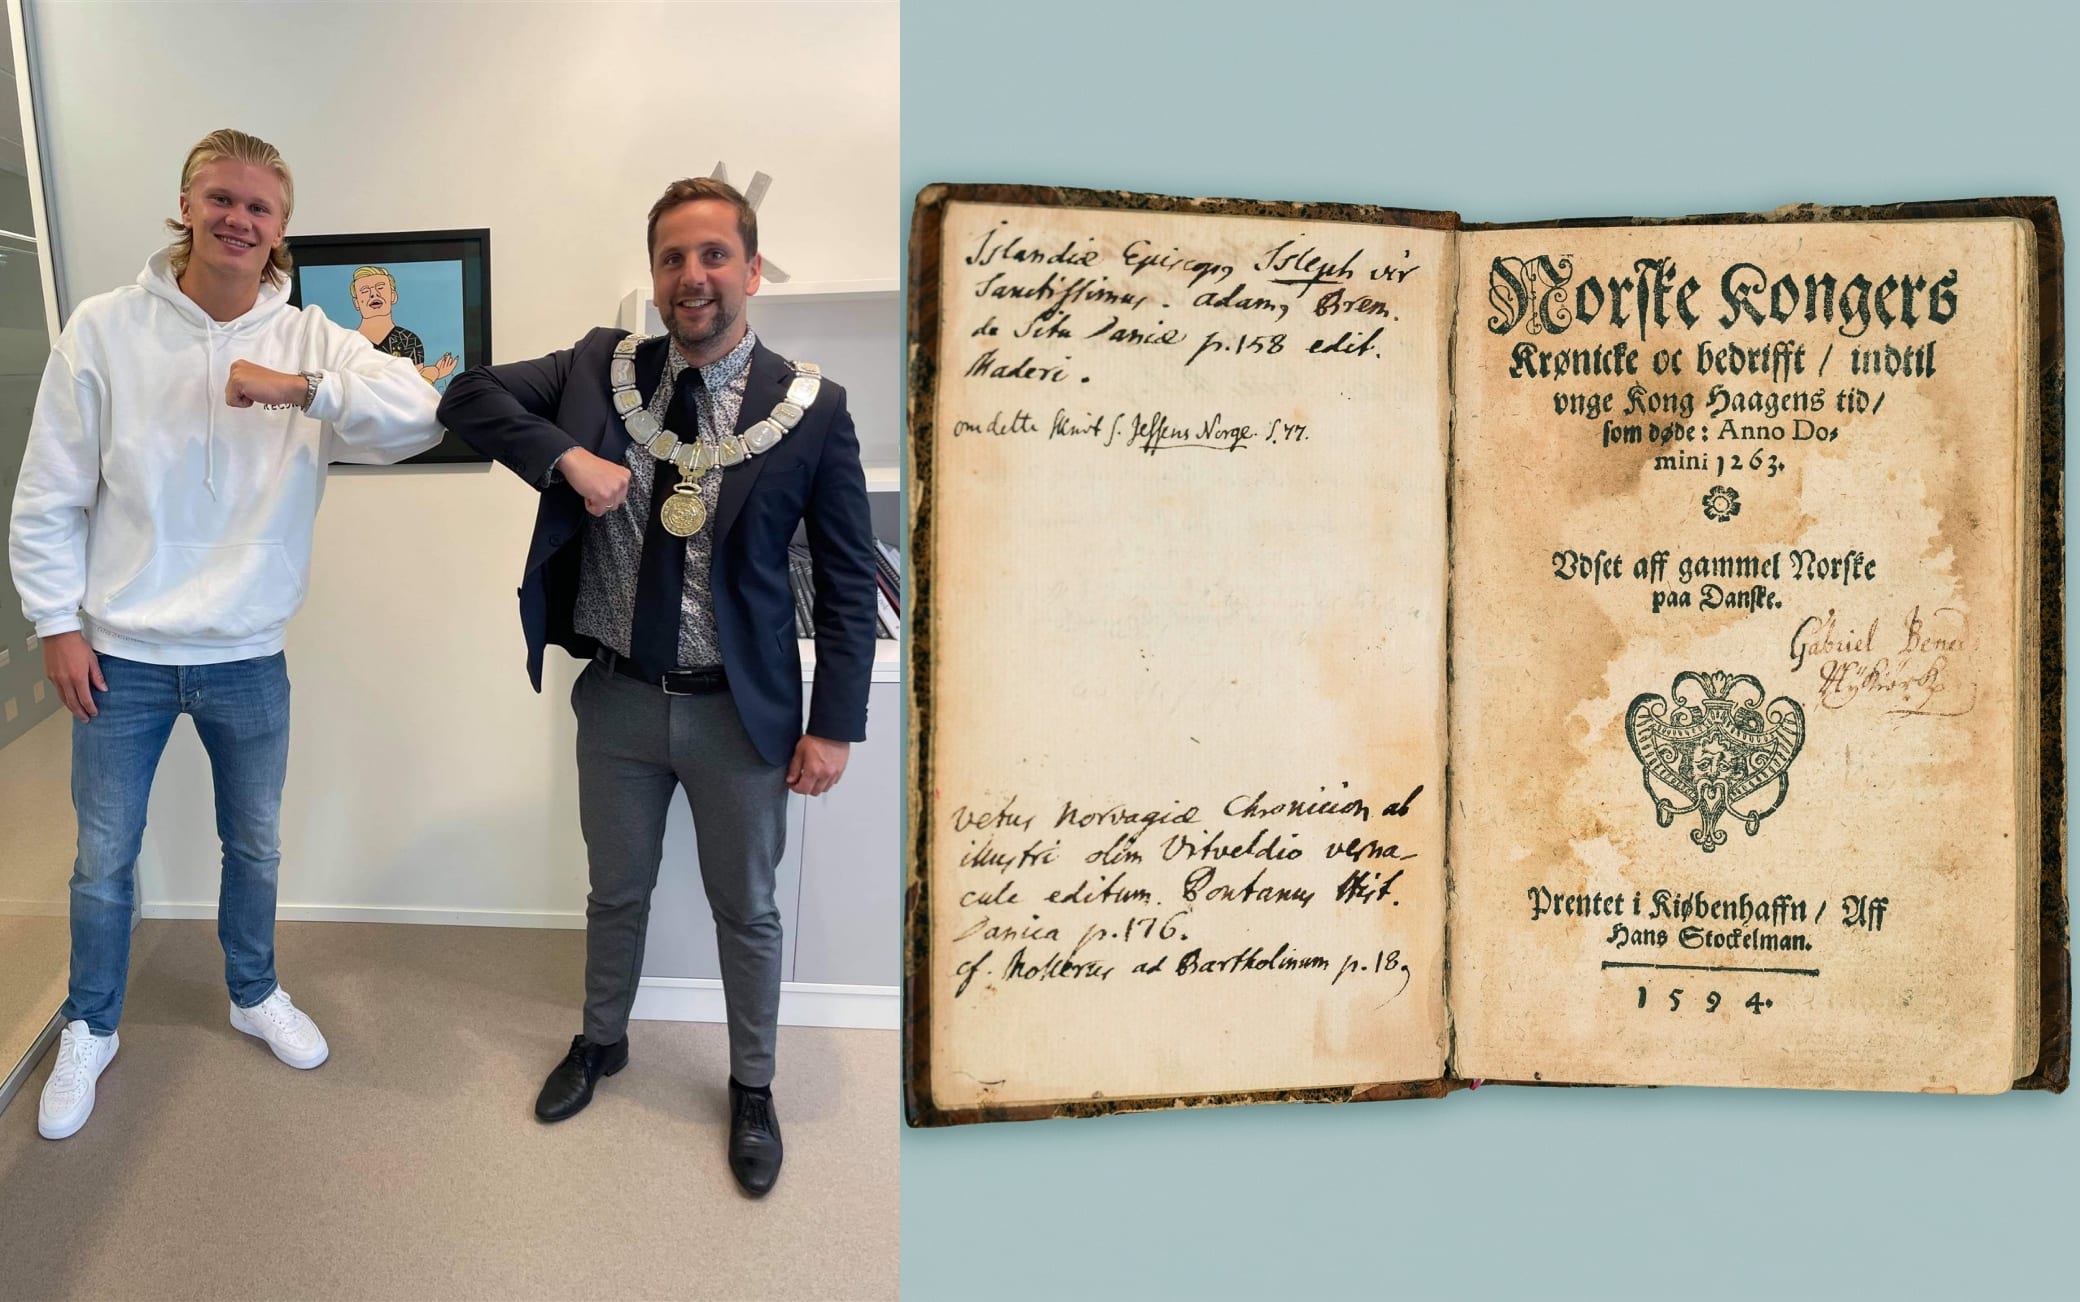 Islandiæ Episcop, Isleph vir
Sanctissimus. adam, Brem.
de Situ Daniæ p.158 edit.
Maderi.
om dette Skrivt s. Jessens Norge. S. 77.
vetus Norvagiæ Chronicion ab
illustri olim Vitveldio verna-
cule editum. Pontanus Hist.
Danica p.176.
cf. Mollerus ad Bartholinum p.18,
Norſke Kongers
Krønicke oc bedrifft / indtil
vnge Kong Haagens tid /
ſom døde: Anno Do⸗
mini 1263.
Vdſet aff gammel Norſke
paa Danſke.
Gabriel
Prentet i Kiøbenhaffn / Aff
Hans Stockelman.
1594.